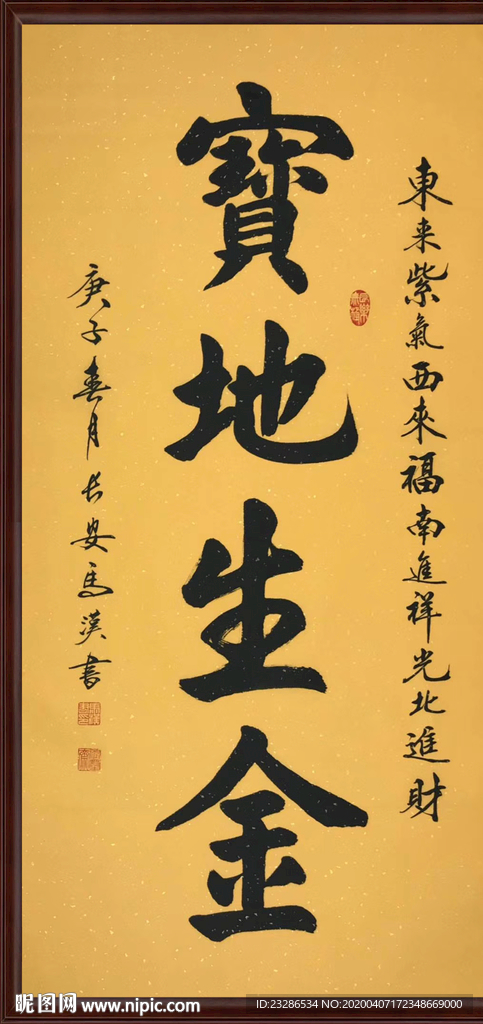 東来紫氣西來福南進祥光北進財
寶地生金
庚子春月長安馬漢書
昵图网 www.nipic.com
ID:23286534 NO:20200407172348669000